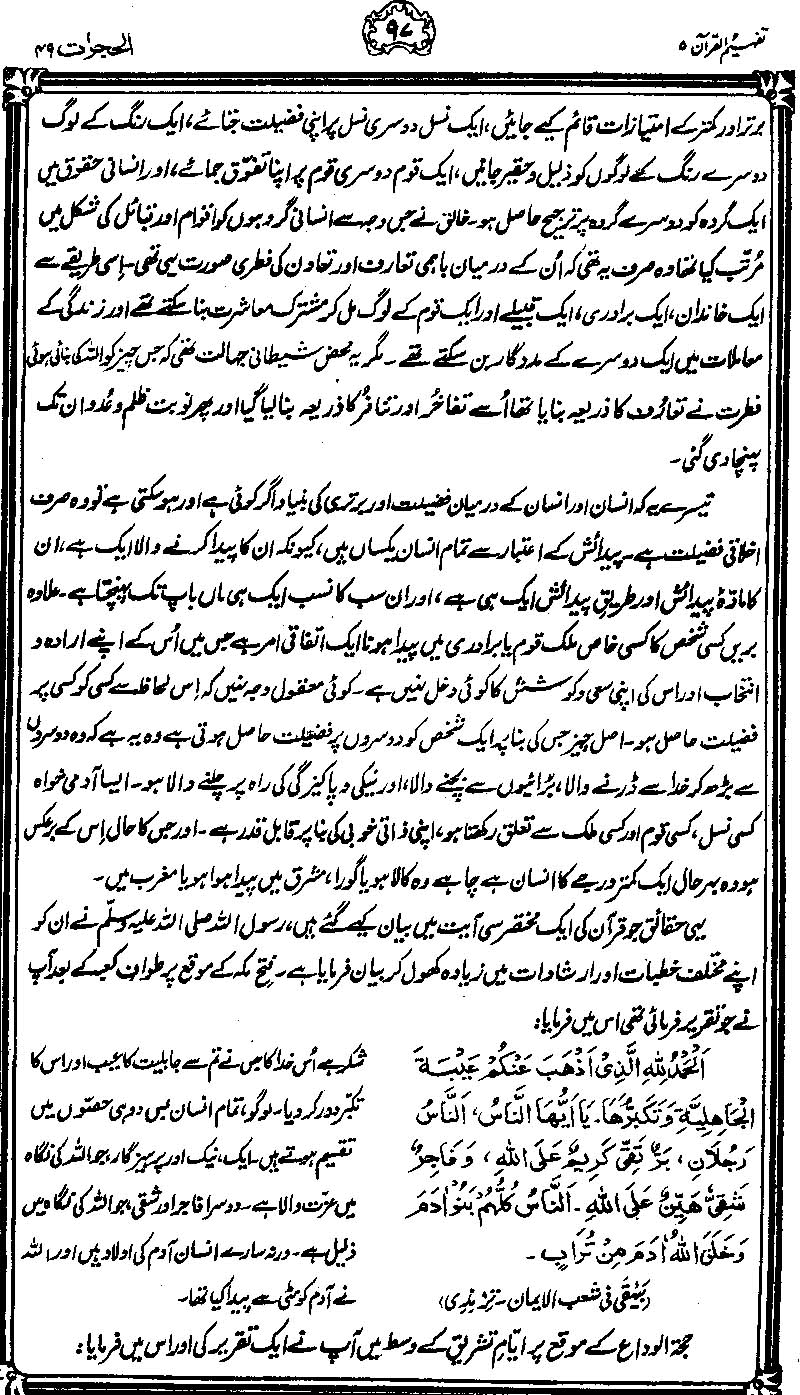 تفہیم القرآن ۵
۹۷
الحجرات ۴۹
برتر اور کمتر کے امتیازات قائم کیے جائیں، ایک نسل دوسری نسل پر اپنی فضیلت جتائے، ایک رنگ کے لوگ
دوسرے رنگ کے لوگوں کو ذلیل و حقیر جانیں، ایک قوم دوسری قوم پر اپنا تفوّق جمائے، اور انسانی حقوق میں
ایک گروہ کو دوسرے گروہ پر ترجیح حاصل ہو۔ خالق نے جس وجہ سے انسانی گروہوں کو اقوام اور قبائل کی شکل میں
مُرتّب کیا تھا وہ صرف یہ تھی کہ اُن کے درمیان باہمی تعارف اور تعاون کی فطری صورت یہی تھی۔ اِسی طریقے سے
ایک خاندان، ایک برادری، ایک قبیلے اور ایک قوم کے لوگ مل کر مشترک معاشرت بنا سکتے تھے اور زندگی کے
معاملات میں ایک دوسرے کے مددگار بن سکتے تھے۔ مگر یہ محض شیطانی جہالت تھی کہ جس چیز کو اللہ کی بنائی ہوئی
فطرت نے تعارُف کا ذریعہ بنایا تھا اُسے تفاخُر اور تنافُر کا ذریعہ بنا لیا گیا اور پھر نوبت ظلم و عُدوان تک
پہنچا دی گئی۔
تیسرے یہ کہ انسان اور انسان کے درمیان فضیلت اور برتری کی بنیاد اگر کوئی ہے اور ہو سکتی ہے تو وہ صرف
اخلاقی فضیلت ہے۔ پیدائش کے اعتبار سے تمام انسان یکساں ہیں، کیونکہ ان کا پیدا کرنے والا ایک ہے، ان
کا مادۂ پیدائش اور طریقِ پیدائش ایک ہی ہے، اور ان سب کا نسب ایک ہی ماں باپ تک پہنچتا ہے۔ علاوہ
بریں کسی شخص کا کسی خاص ملک قوم یا برادری میں پیدا ہونا ایک اتفاقی امر ہے جس میں اُس کے اپنے ارادہ و
انتخاب اور اس کی اپنی سعی و کوشش کا کوئی دخل نہیں ہے۔ کوئی معقول وجہ نہیں کہ اِس لحاظ سے کسی کو کسی پر
فضیلت حاصل ہو۔ اصل چیز جس کی بنا پہ ایک شخص کو دوسروں پر فضیلت حاصل ہوتی ہے وہ یہ ہے کہ وہ دوسروں
سے بڑھ کر خدا سے ڈرنے والا، برائیوں سے بچنے والا، اور نیکی و پاکیزگی کی راہ پر چلنے والا ہو۔ ایسا آدمی خواہ
کسی نسل، کسی قوم اور کسی ملک سے تعلق رکھتا ہو، اپنی ذاتی خوبی کی بنا پر قابل قدر ہے۔ اور جس کا حال اِس کے برعکس
ہو وہ بہرحال ایک کمتر درجے کا انسان ہے چاہے وہ کالا ہو یا گورا، مشرق میں پیدا ہوا ہو یا مغرب میں۔
یہی حقائق جو قرآن کی ایک مختصر سی آیت میں بیان کیے گئے ہیں، رسول اللہ صلی اللہ علیہ وسلّم نے ان کو
اپنے مختلف خطبات اور ارشادات میں زیادہ کھول کر بیان فرمایا ہے۔ فتح مکہ کے موقع پر طوافِ کعبہ کے بعد آپ
نے جو تقریر فرمائی تھی اس میں فرمایا:
اَلْحَمْدُ لِلّٰہِ الَّذِیْ اَذْھَبَ عَنْکُمْ عَیْبَۃَ
الْجَاھِلِیَّۃِ وَتَکَبُّرَھَا۔ یَا اَیُّھَا النَّاسُ، اَلنَّاسُ
رَجُلَانِ، بَرٌّ تَقِیٌّ کَرِیْمٌ عَلَی اللّٰہِ، وَفَاجِرٌ
شَقِیٌّ ھَیِّنٌ عَلَی اللّٰہِ۔ اَلنَّاسُ کُلُّھُمْ بَنُوْ اٰدَمَ
وَخَلَقَ اللّٰہُ اٰدَمَ مِنْ تُرَابٍ۔
(بیہقی فی شعب الایمان۔ ترمذی)
شکر ہے اُس خدا کا جس نے تم سے جاہلیت کا عیب اور اس کا
تکبّر دور کر دیا۔ لوگو، تمام انسان بس دو ہی حصّوں میں
تقسیم ہوتے ہیں۔ ایک، نیک اور پرہیزگار، جو اللہ کی نگاہ
میں عزّت والا ہے۔ دوسرا فاجر اور شقی، جو اللہ کی نگاہ میں
ذلیل ہے۔ ورنہ سارے انسان آدم کی اولاد ہیں اور اللہ
نے آدم کو مٹی سے پیدا کیا تھا۔
حجۃ الوداع کے موقع پر ایّامِ تشریق کے وسط میں آپ نے ایک تقریر کی اور اس میں فرمایا: